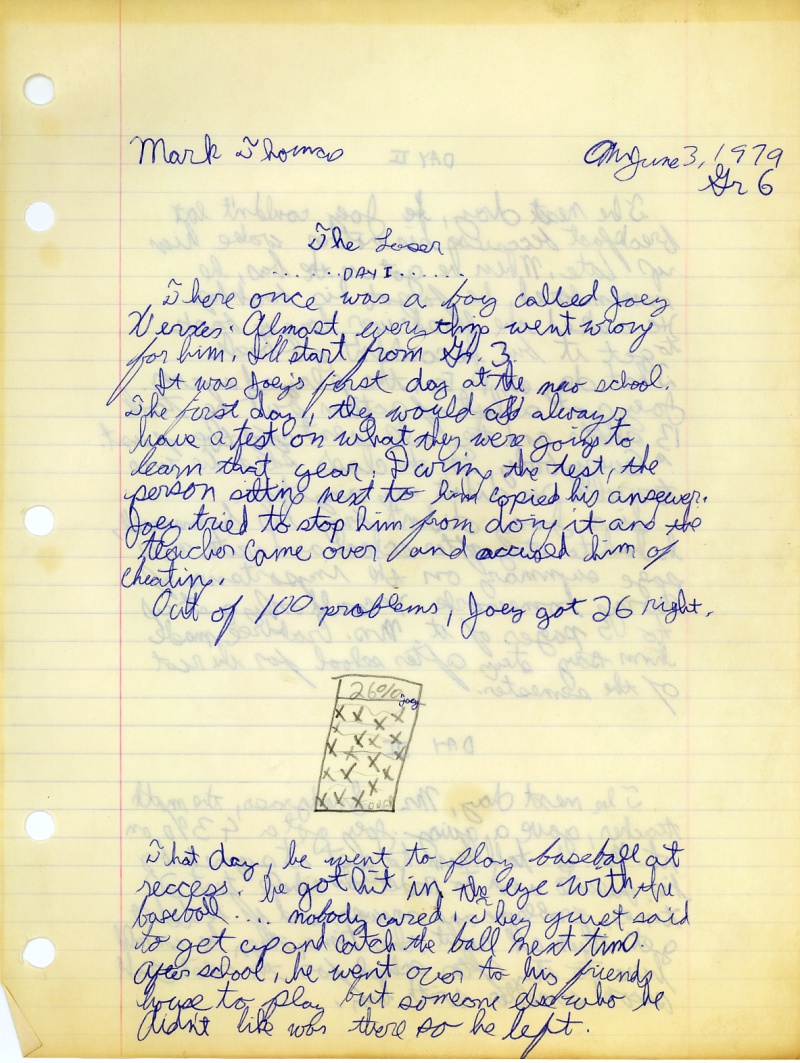 Mark Thomas
June 3, 1979
Gr 6
The Loser
......DAY I......
There once was a boy called Joey
Xerxes. Almost everything went wrong
for him. I'll start from Gr. 3.
It was Joey's first day at the new school.
The first day, they would always
have a test on what they were going to
learn that year. During the test, the
person sitting next to him copied his answer.
Joey tried to stop him from doing it and the
teacher came over and accused him of
cheating.
Out of 100 problems, Joey got 26 right.
26%
Joey
OVER
That day, he went to play baseball at
reccess. he got hit in the eye with the
baseball .... nobody cared. They said
to get up and catch the ball next time.
After school, he went over to his friends
house to play but someone else who he
didn't like was there so he left.